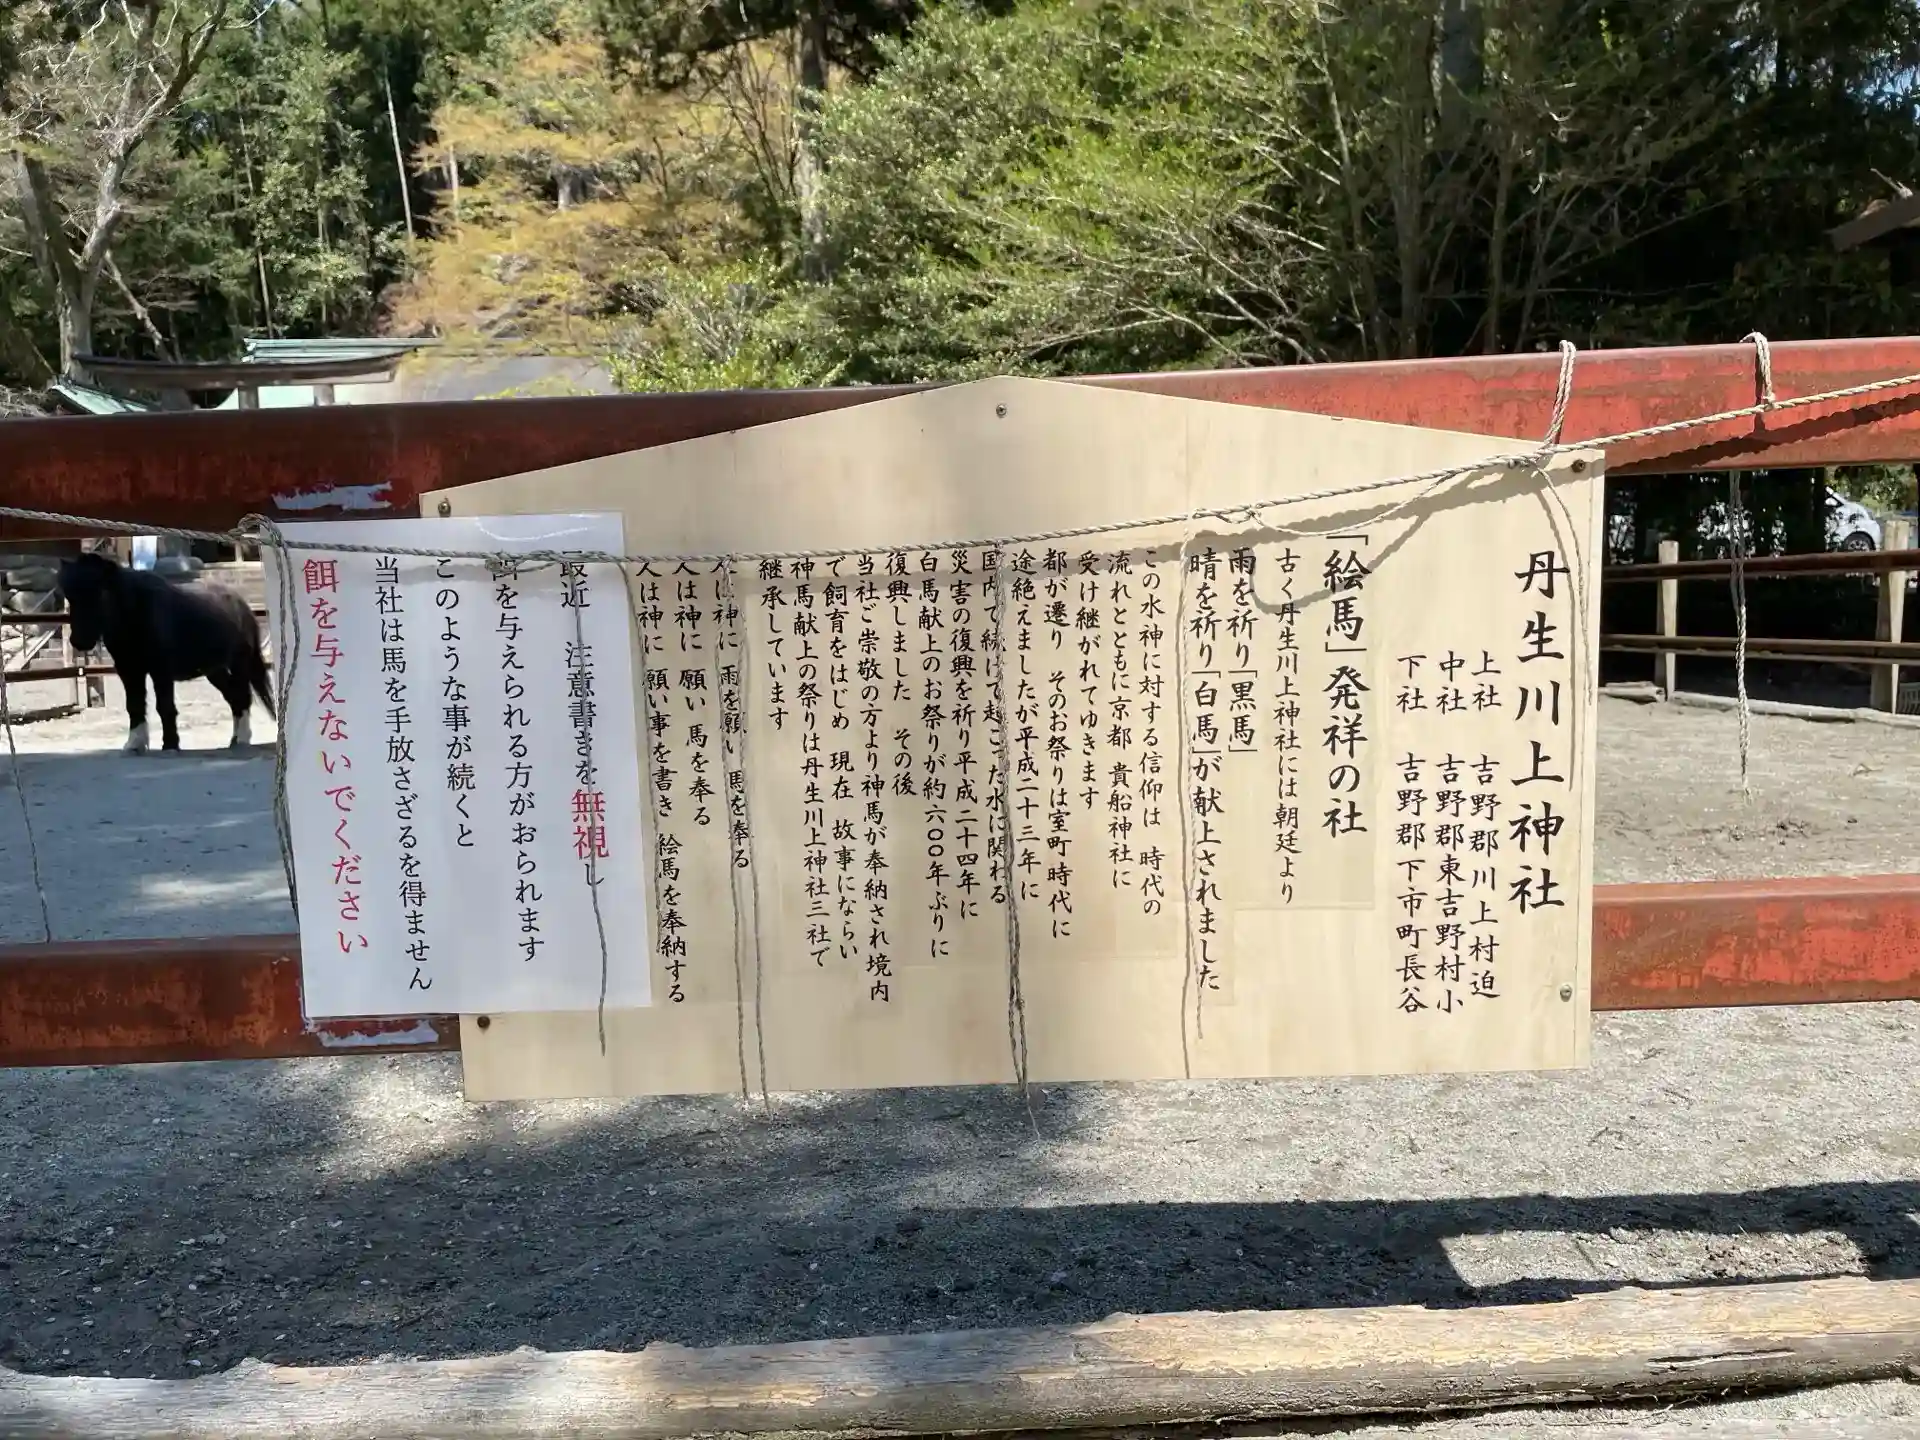 丹生川上神社
上社 吉野郡川上村迫
中社 吉野郡東吉野村小
下社 吉野郡下市町長谷
「絵馬」発祥の社
古く丹生川上神社には朝廷より
雨を祈り「黒馬」
晴を祈り「白馬」が献上されました
この水神に対する信仰は 時代の
流れとともに京都 貴船神社に
受け継がれてゆきます
都が遷り そのお祭りは室町時代に
途絶えましたが平成二十三年に
国内で続けて起こった水に関わる
災害の復興を祈り平成二十四年に
白馬献上のお祭りが約六〇〇年ぶりに
復興しました その後
当社ご崇敬の方より神馬が奉納され境内
で飼育をはじめ 現在 故事にならい
神馬献上の祭りは丹生川上神社三社で
継承しています
人は神に 雨を願い 馬を奉る
人は神に 願い 馬を奉る
人は神に 願い事を書き 絵馬を奉納する
最近 注意書きを無視し
餌を与えられる方がおられます
このような事が続くと
当社は馬を手放さざるを得ません
餌を与えないでください